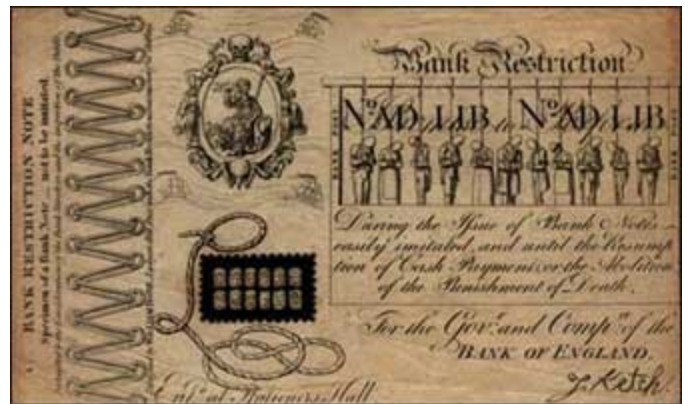 BANK RESTRICTION NOTE
Specimen of a Bank Note not to be imitated.
Bank Restriction
No. AD. LIB. No. AD. LIB.
During the Issue of Bank Notes
easily imitated, and until the Resump
tion of Cash Payments, or the Abolition
of the Punishment of Death.
For the Govr. and Compa. of the
BANK OF ENGLAND.
J. Ketch.
Entd. at Stationers Hall